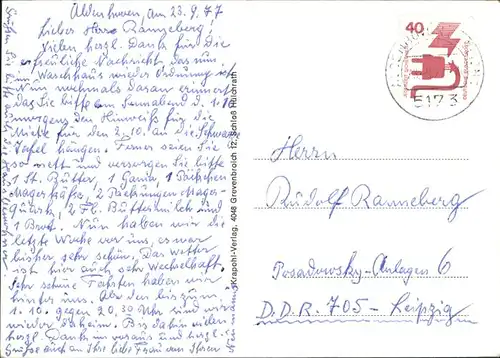 Aldenhoven, am 23.9.77
Lieber Herr Ranneberg,
Vielen herzl. Dank für Die
erfreuliche Nachricht, das nun
im Waschhaus wieder Ordnung ist.
Nun nochmals daran erinnert
das Sie bitte am Sonnabend d. 1.10
morgens den Hinweis für die
Mieter für den 2.10. an die Schwarze
Tafel hängen. Ferner seien Sie
so nett und versorgen Sie bitte
1 St. Butter, 1
2 Packungen Mager-
Quark, 2 Fl. Buttermilch und
1 Brot. Nun haben wir die
letzte Woche vor uns, es war
bisher sehr schön. Das Wetter
ist hier auch sehr Wechselhaft.
Sehr schöne Fahrten haben wir
hinter uns. Also den
1.10. gegen 20,30 Uhr sind wir
wieder daheim. Bis dahin vielen
herzl. Dank im voraus und herzl.
Grüße auch an Ihre liebe Frau von Ihrem
Krapohl-Verlag, 4048 Grevenbroich 12, Schloß Hülchrath
40
5173
Herrn
Rudolf Ranneberg
Posadowsky-Anlagen 6
D.D.R. 705 - Leipzig